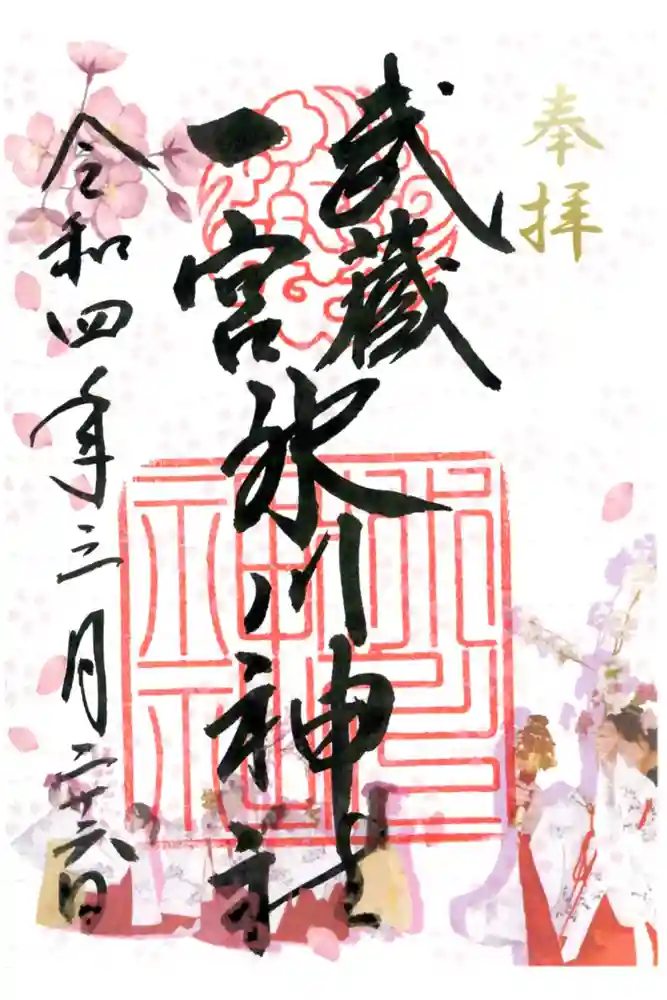 奉拝
武蔵
一宮
氷川神社
令和四年三月二十六日